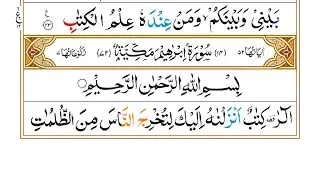 بَيْنِيْ وَبَيْنَكُمْ ۙ وَمَنْ عِنْدَهٗ عِلْمُ الْكِتٰبِ ۝٤٣
اٰيَاتُهَا ٥٢ (١٤) سُوْرَةُ اِبْرٰهِيْمَ مَكِّيَّةٌ (٧٢) رُكُوْعَاتُهَا ٧
بِسْمِ اللّٰهِ الرَّحْمٰنِ الرَّحِيْمِ
الٓرٰ ۟ كِتٰبٌ اَنْزَلْنٰهُ اِلَيْكَ لِتُخْرِجَ النَّاسَ مِنَ الظُّلُمٰتِ